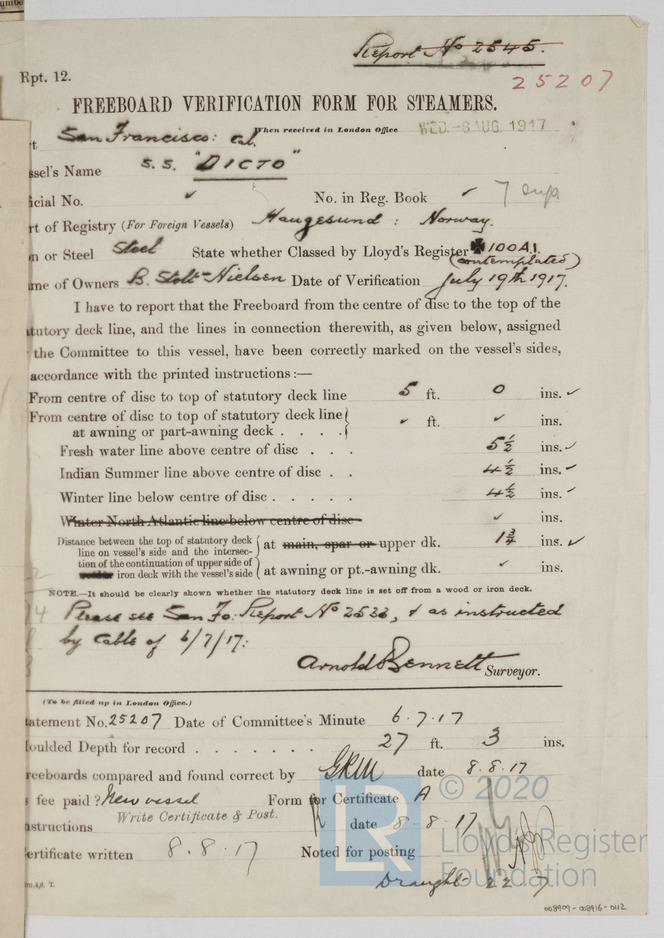 Report No 2545.
Rpt. 12.
25207
FREEBOARD VERIFICATION FORM FOR STEAMERS.
When received in London Office WED. -8 AUG. 1917
rt San Francisco: Cal.
ssel's Name S.S. "DICTO"
icial No. ✓ No. in Reg. Book ✓ 7 sup
rt of Registry (For Foreign Vessels) Haugesund : Norway.
n or Steel Steel State whether Classed by Lloyd's Register ✠100A1.
(contemplated)
me of Owners B. Stolt-Nielsen Date of Verification July 19th 1917.
I have to report that the Freeboard from the centre of disc to the top of the
tutory deck line, and the lines in connection therewith, as given below, assigned
the Committee to this vessel, have been correctly marked on the vessel's sides,
accordance with the printed instructions:—
From centre of disc to top of statutory deck line 5 ft. 0 ins. ✓
From centre of disc to top of statutory deck line
at awning or part-awning deck . . . . ✓ ft. ✓ ins.
Fresh water line above centre of disc . . . 5½ ins. ✓
Indian Summer line above centre of disc . . 4½ ins. ✓
Winter line below centre of disc . . . . . 4½ ins. ✓
Winter North Atlantic line below centre of disc ✓ ins.
Distance between the top of statutory deck
line on vessel's side and the intersec-
tion of the continuation of upper side of
iron deck with the vessel's side
at main, spar or upper dk. 1¾ ins. ✓
at awning or pt.-awning dk. ✓ ins.
NOTE.—It should be clearly shown whether the statutory deck line is set off from a wood or iron deck.
Please see San Fo: Report No 2533, & as instructed
by Cable of 6/7/17:
Arnold Bennett Surveyor.
(To be filled up in London Office.)
tatement No. 25207 Date of Committee's Minute 6.7.17
oulded Depth for record . . . . . . . 27 ft. 3 ins.
reeboards compared and found correct by GRM date 8.8.17
s fee paid? New vessel Form for Certificate A
Write Certificate & Post.
nstructions date 8-8-17
ertificate written 8.8.17 Noted for posting
Draught 22 7
© 2020
Lloyd's Register
Foundation
LR
008909-008916-0112